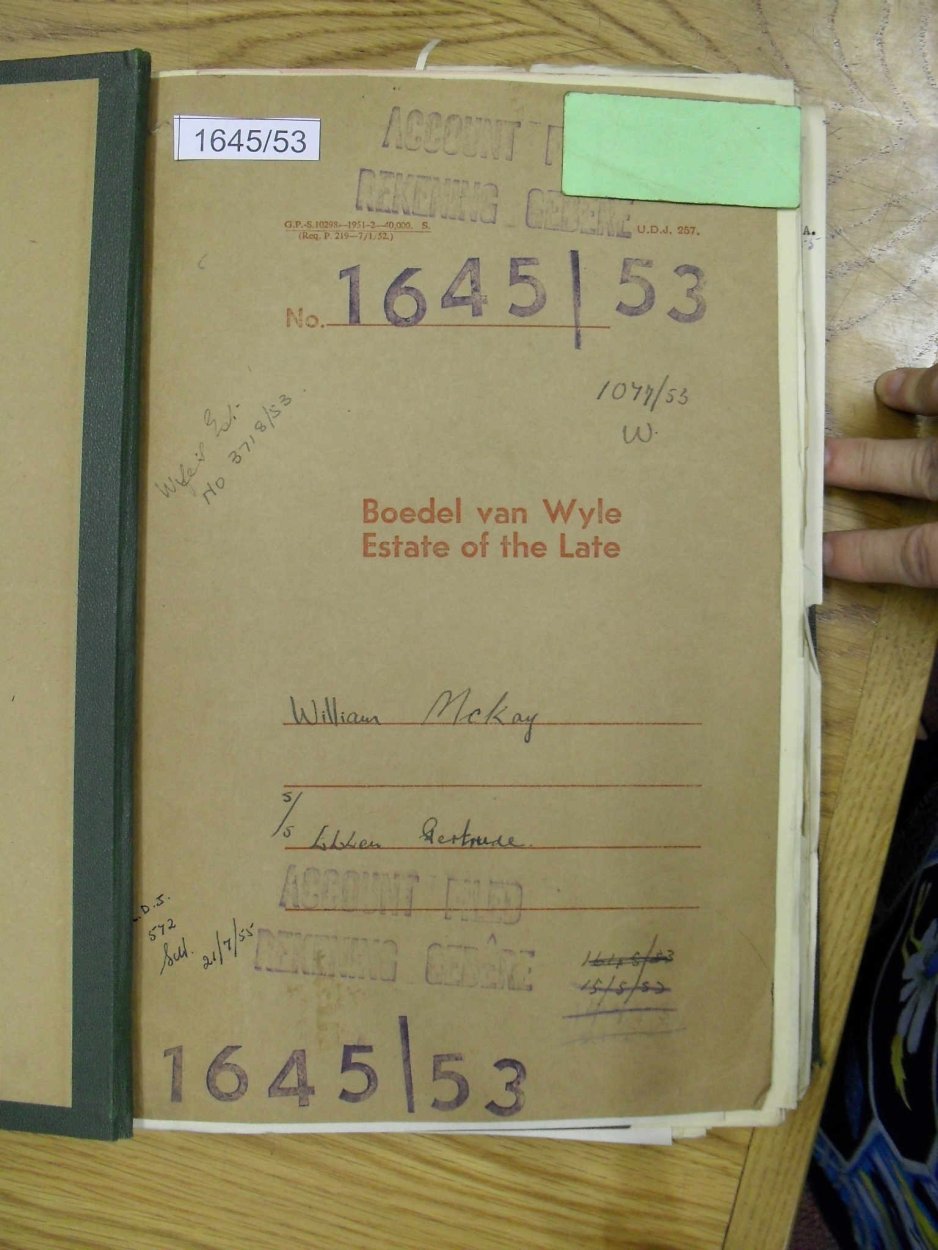 1645/53
ACCOUNT F
REKENING GEDEKE
G.P.-S.10298—1951-2—40,000. S.
(Req. P. 219—7/1/52.)
U.D.J. 257.
A.
No. 1645|53
1077/53
W.
Wife's Est.
No 3718/53.
Boedel van Wyle
Estate of the Late
William McKay
s/s Lilian Gertrude.
ACCOUNT FILED
REKENING GEDÊRE
.D.J.
572
21/7/55
1645/53
15/5/53
1645|53